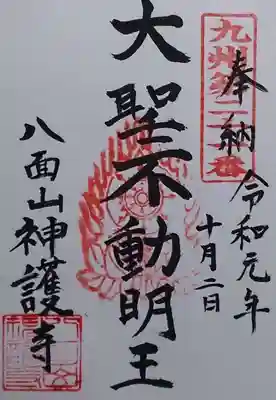 九州第二十二番
奉納
令和元年
十月二日
大聖不動明王
八面山神護寺